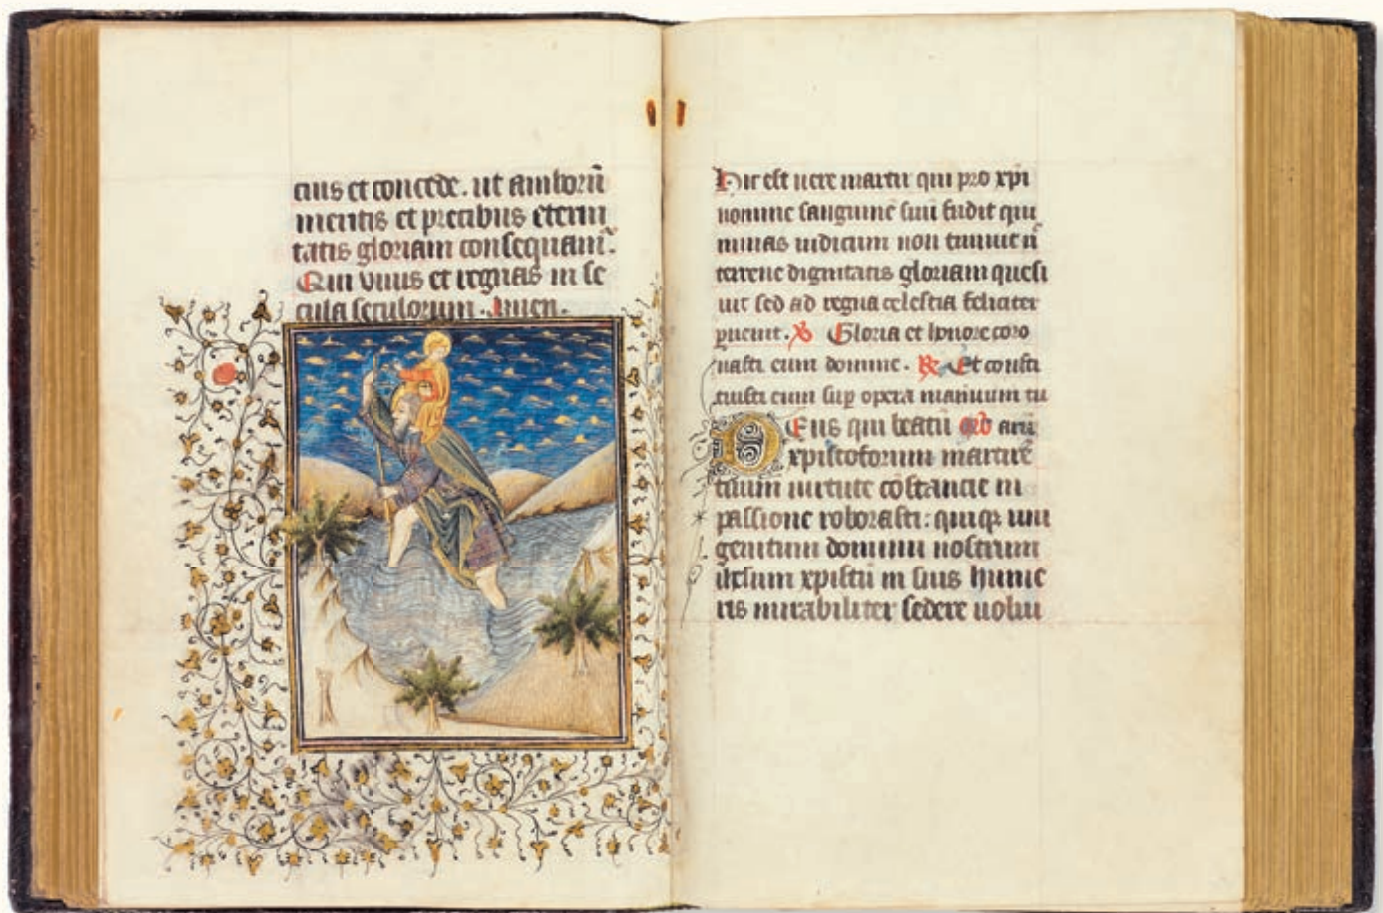 cius et concede. ut amborū
meritis et precibus eterni
tatis gloriam consequam̄.
Qui viuis et regnas in se
cula seculorum. Amen.
Hic est uere martir qui pro xp̄i
nomine sanguinē suū fudit qui
minas iudicum non timuit n̄
terrene dignitatis gloriam quesi
uit sed ad regna celestia feliciter
puenit. V Gloria et honore coro
nasti eum domine. R Et consti
tuisti eum sup opera manuum tu
Deus qui beatū oro arū
xpistoforum martirē
tuum uirtute cōstancie in
passione roborasti: quiqꝫ uni
genitum dominum nostrum
ihesum xpistū in suis hume
ris mirabiliter sedere uolui